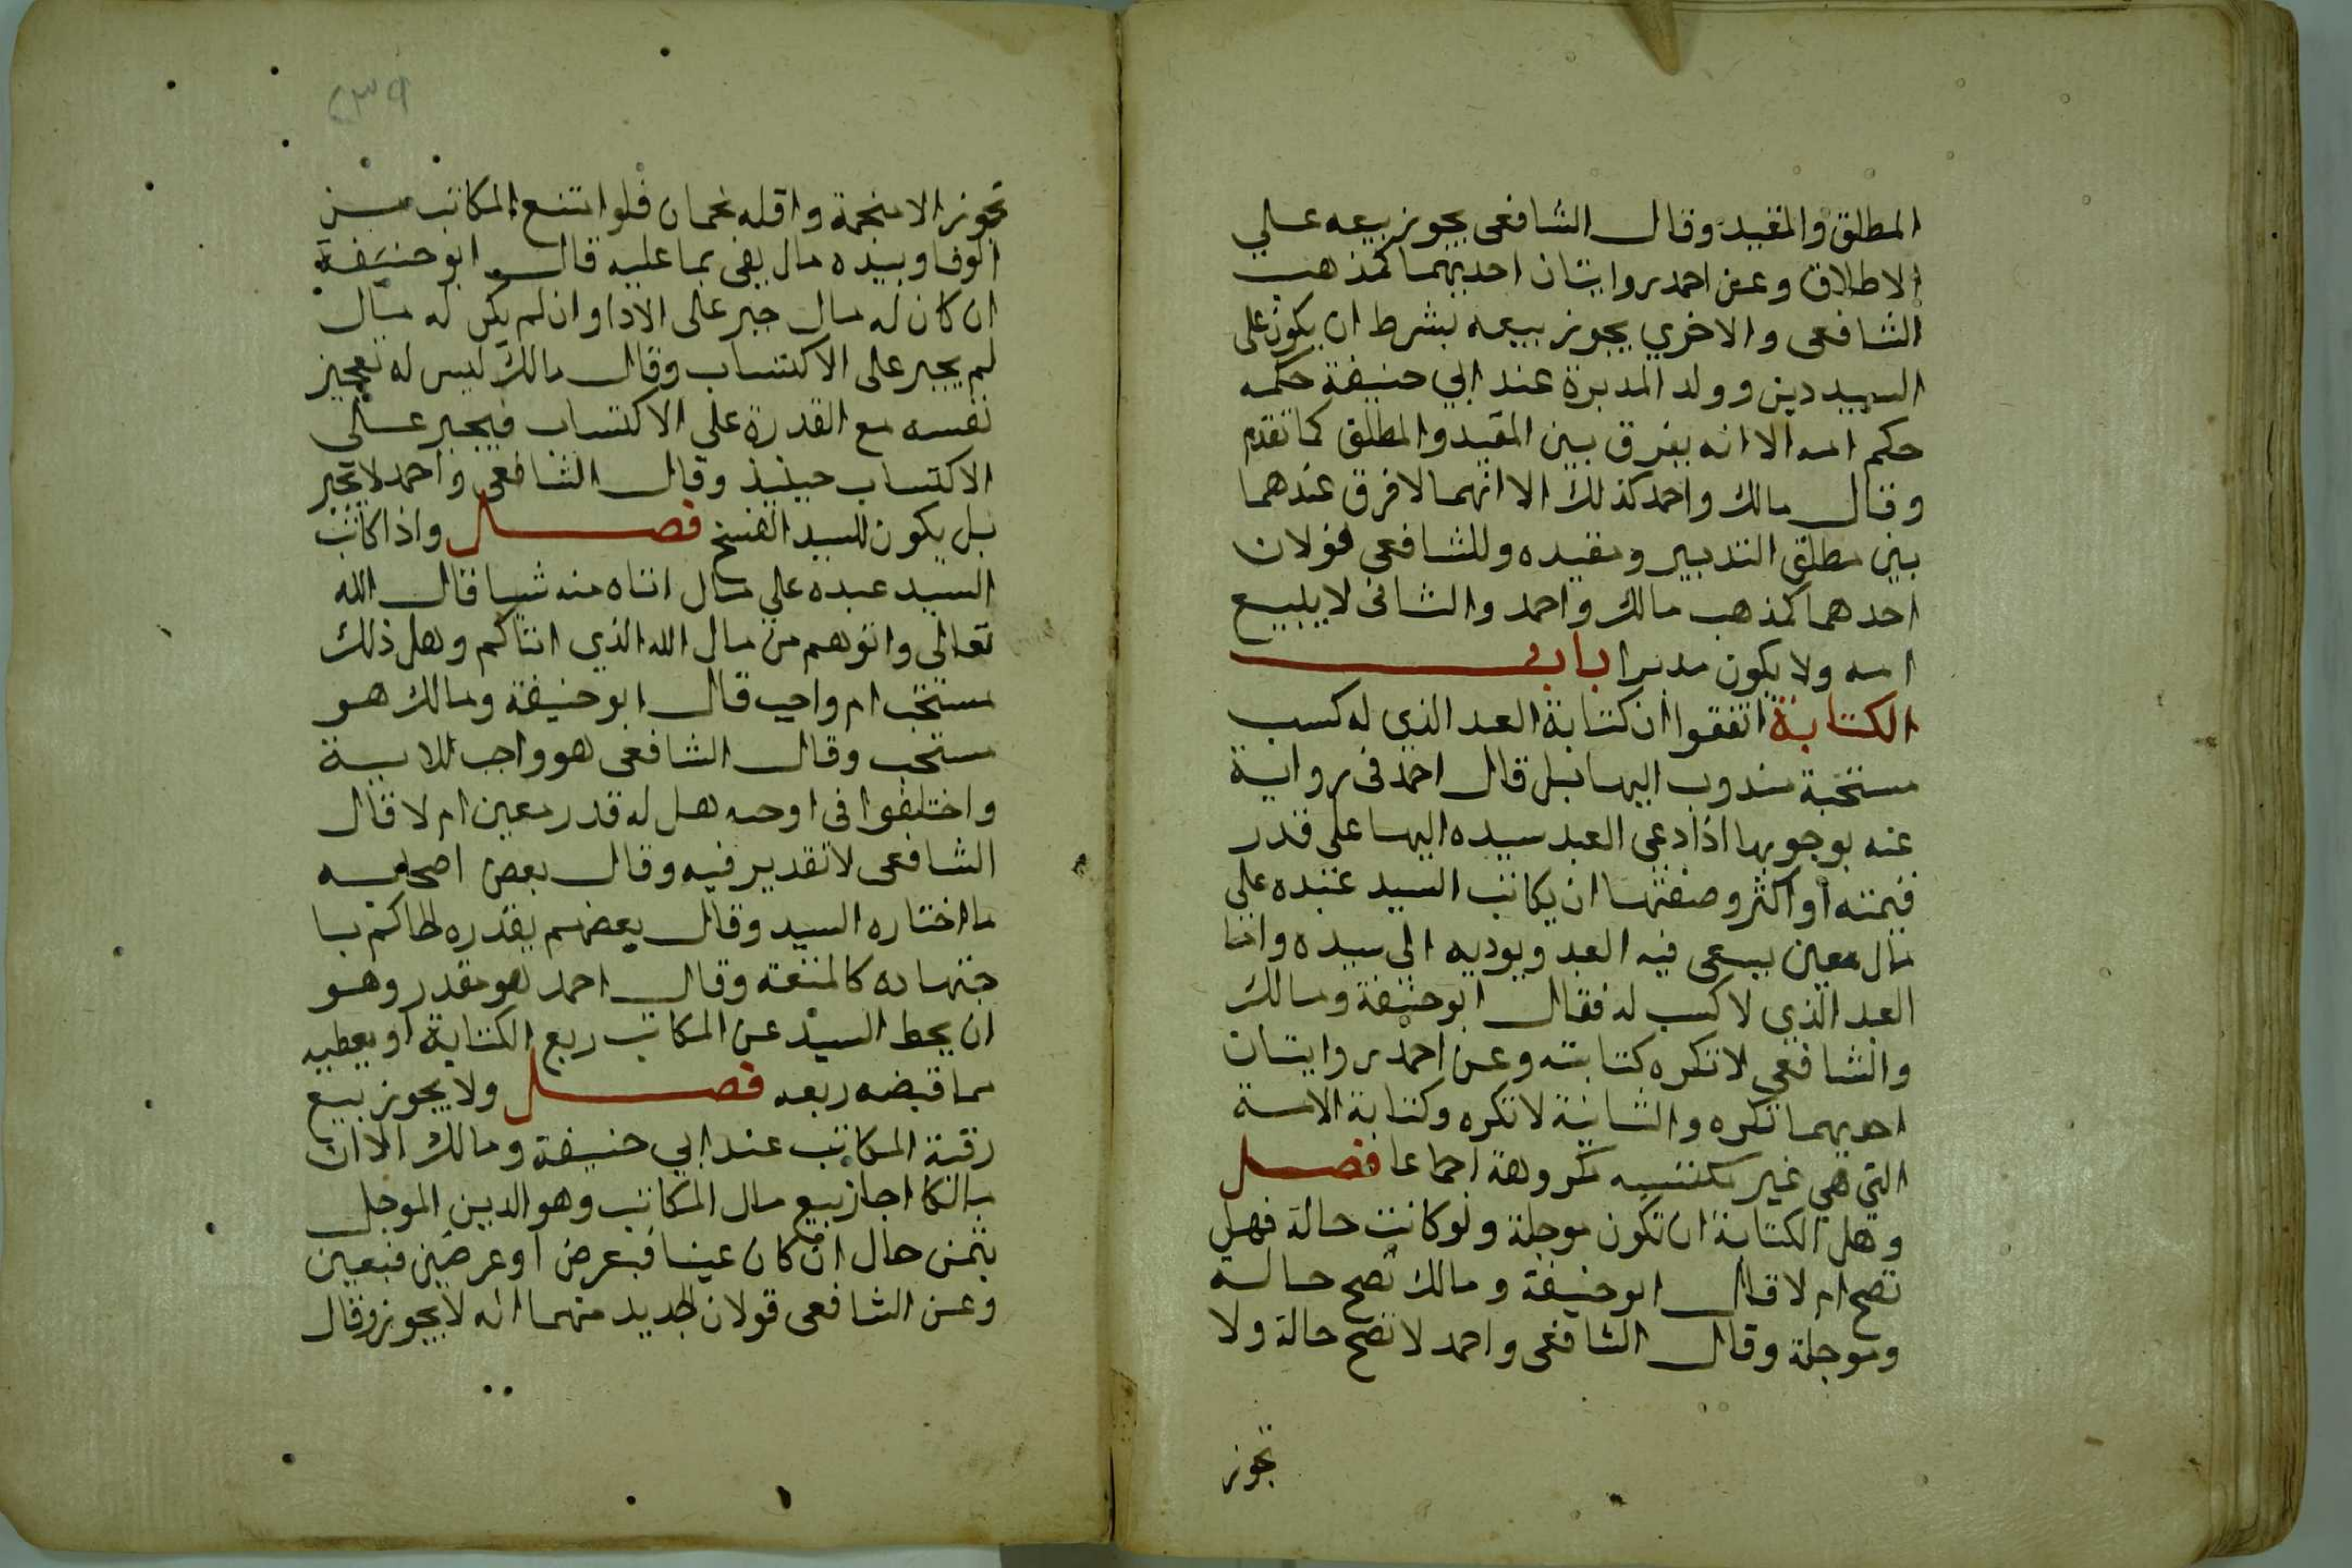 المطلق والمقيد وقال الشافعي يجوز بيعه علي
الاطلاق وعن احمد روايتان احديهما كمذهب
الشافعي والاخري يجوز بيعه بشرط ان يكون على
السيد دين وولد المدبرة عند ابي حنيفة حكمه
حكم امه الا انه يفرق بين المقيد والمطلق كما تقدم
وقال مالك واحمد كذلك الا انهما لا فرق عندهما
بين مطلق التدبير ومقيده وللشافعي قولان
احدهما كمذهب مالك واحمد والثاني لا يلبيع
امه ولا يكون مدبرا باب
الكتابة اتفقوا ان كتابة العبد الذي له كسب
مستحبة مندوب اليها بل قال احمد في رواية
عنه بوجوبها اذا دعي العبد سيده اليها على قدر
قيمته او اكثر وصفتها ان يكاتب السيد عبده علي
مال معين يسعى فيه العبد ويوديه الى سيده واما
العبد الذي لا كسب له فقال ابو حنيفة ومالك
والشافعي لا تكره كتابته وعن احمد روايتان
احديهما تكره والثانية لا تكره وكتابة الامة
التي هي غير مكتسبه مكروهة اجماعا فصل
وهل الكتابة ان تكون موجلة ولو كانت حالة فهل
تصح ام لا قال ابو حنيفة ومالك تصح حاله
وموجلة وقال الشافعي واحمد لا تصح حالة ولا
تجوز
٢٣٩
تجوز الا منجمة واقله نجمان فلو امتنع المكاتب من
الوفا وبيده مال يفي بما عليه قال ابو حنيفة
ان كان له مال جبر على الادا وان لم يكن له مال
لم يجبر على الاكتساب وقال مالك ليس له تعجيز
نفسه مع القدرة علي الاكتساب فيجبر علي
الاكتساب حينيذ وقال الشافعي واحمد لا يجبر
بل يكون للسيد الفسخ فصل واذا كاتب
السيد عبده علي مال اتاه منه شيا قال الله
تعالى واتوهم من مال الله الذي اتاكم وهل ذلك
مستحب ام واجب قال ابو حنيفة ومالك هو
مستحب وقال الشافعي هو واجب للاية
واختلفوا في اوجبه هل له قدر معين ام لا قال
الشافعي لا تقدير فيه وقال بعض اصحابه
ما اختاره السيد وقال بعضهم يقدره الحاكم با
جتهاده كالمتعة وقال احمد هو مقدر وهو
ان يحط السيد عن المكاتب ربع الكتابة او يعطيه
مما قبضه ربعه فصل ولا يجوز بيع
رقبة المكاتب عند ابي حنيفة ومالك الا ان
مالكا اجاز بيع مال المكاتب وهو الدين الموجل
بثمن حال ان كان عينا فبعرض او عرضين فبعين
وعن الشافعي قولان الجديد منهما انه لا يجوز وقال